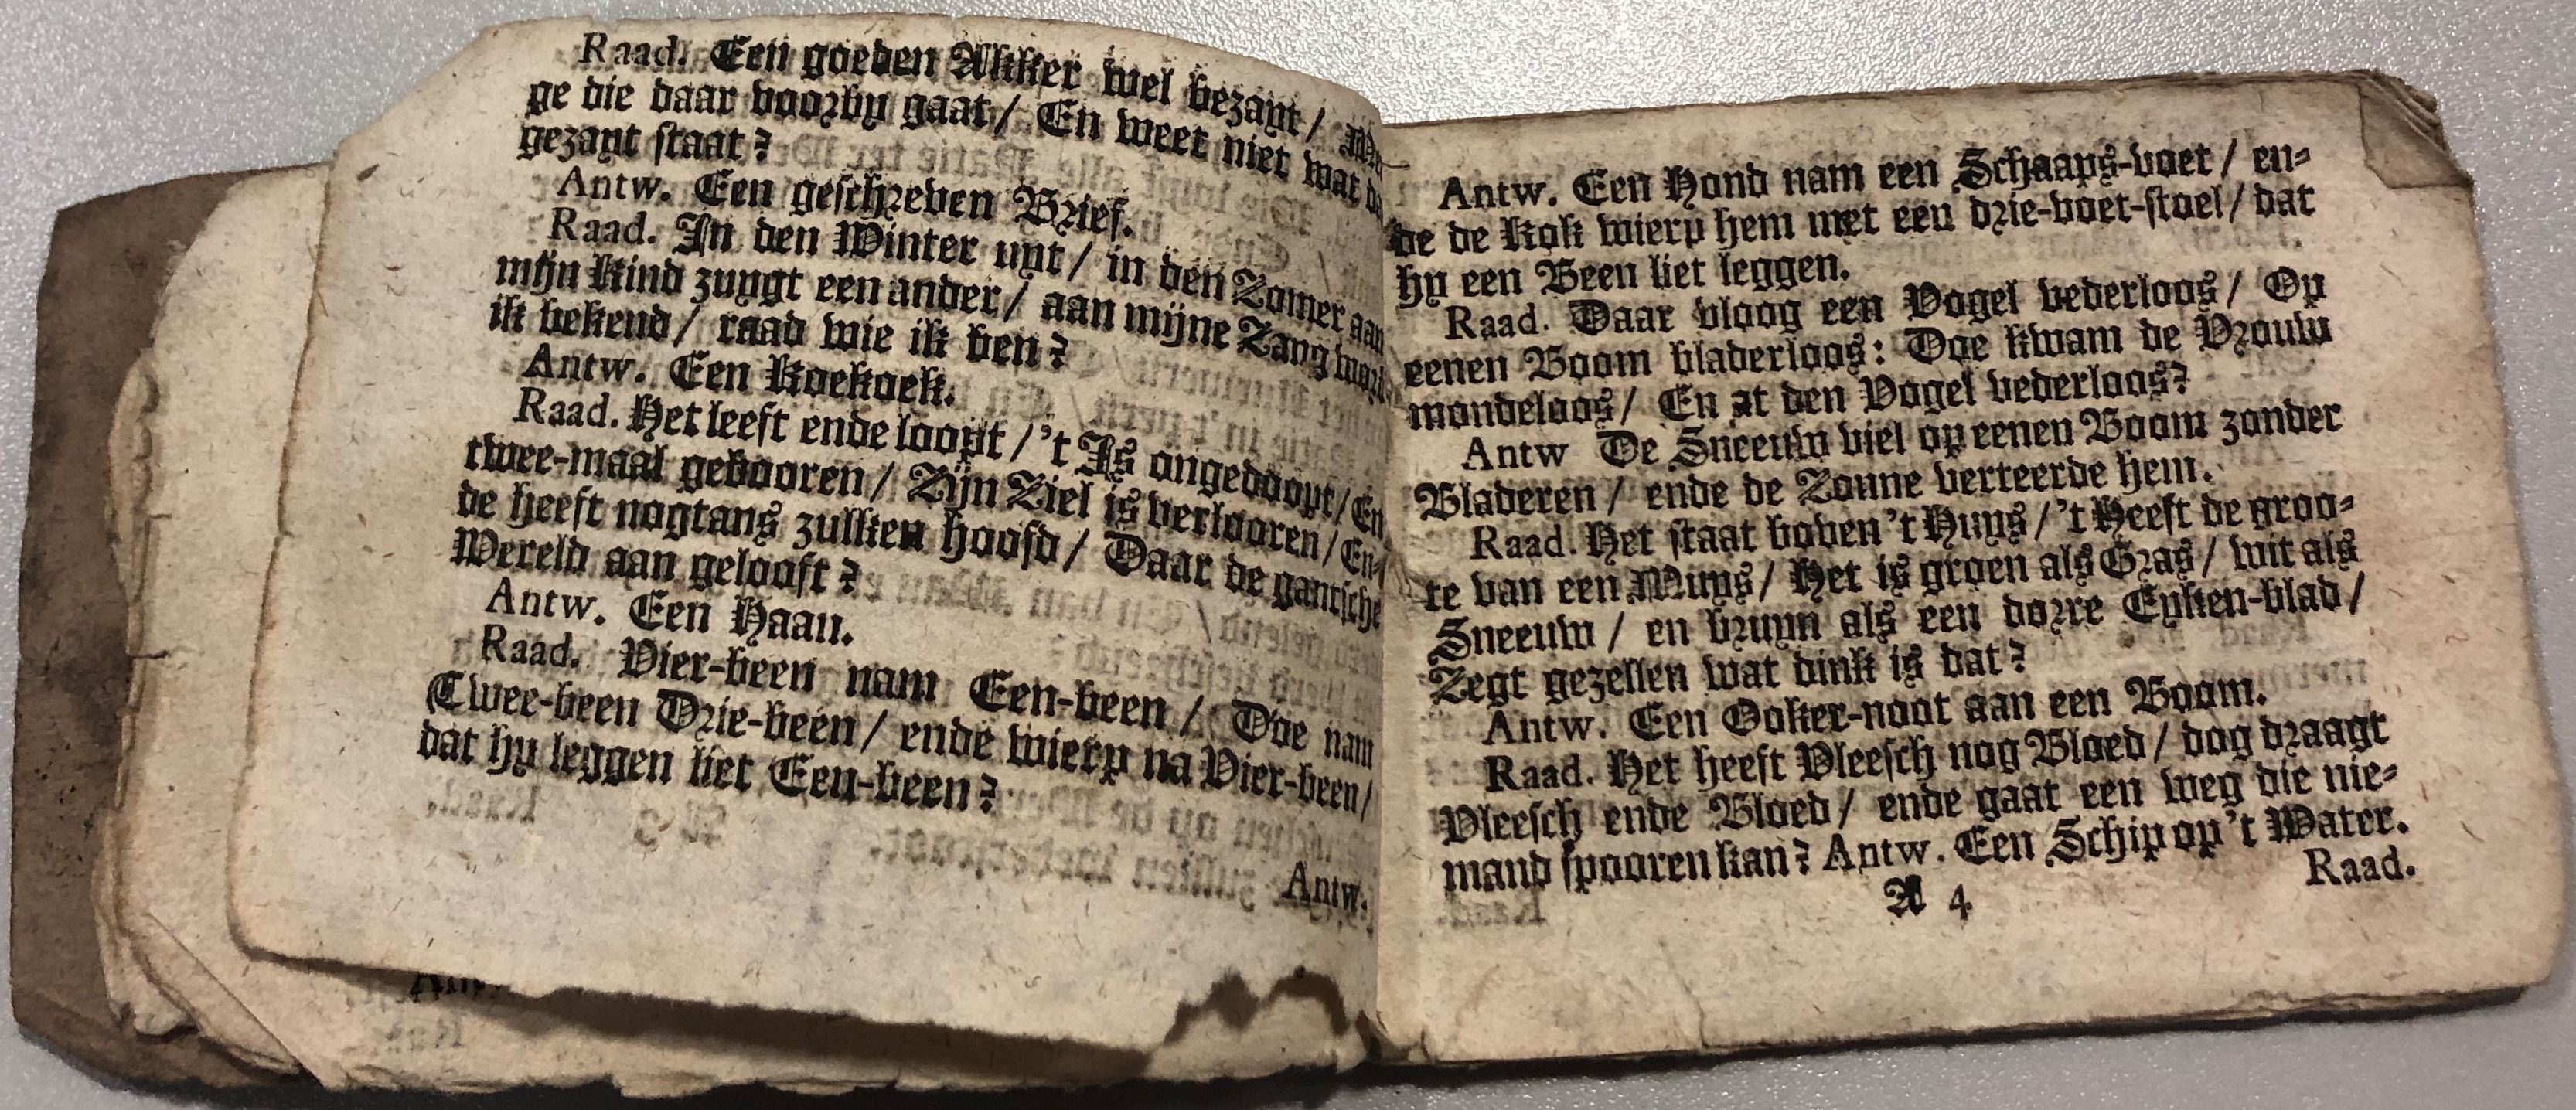 Raad. Een goeden Akker wel bezayt /
ge die daar voorby gaat / En weet niet wat
gezayt staat?
Antw. Een geschreven Brief.
Raad. In den Winter uyt / in den Zomer aan
mijn Kind zuygt een ander / aan mijne Zang word
ik bekend / raad wie ik ben?
Antw. Een Koekoek.
Raad. Het leeft ende loopt / 't Is ongedoopt / En
twee-maal gebooren / Zijn Ziel is verlooren / En-
de heeft nogtans zulken hoofd / Daar de gantsche
Wereld aan gelooft?
Antw. Een Haan.
Raad. Vier-been nam Een-been / Doe nam
Twee-been Drie-been / ende wierp na Vier-been /
dat hy leggen liet Een-been?
Antw.
Antw. Een Hond nam een Schaaps-voet / en-
de de Kok wierp hem met een drie-voet-stoel / dat
hy een Been liet leggen.
Raad. Daar vloog een Vogel vederloos / Op
eenen Boom bladerloos: Doe kwam de Vrouw
mondeloos / En at den Vogel vederloos?
Antw De Sneeuw viel op eenen Boom zonder
Bladeren / ende de Zonne verteerde hem.
Raad. Het staat boven 't Huys / 't Heeft de groo-
te van een Muys / Het is groen als Gras / wit als
Sneeuw / en bruyn als een dorre Eyken-blad /
Zegt gezellen wat dink is dat?
Antw. Een Ooker-noot aan een Boom.
Raad. Het heeft Vleesch nog Bloed / dog draagt
Vleesch ende Bloed / ende gaat een weg die nie-
mand spooren kan? Antw. Een Schip op 't Water.
A 4
Raad.